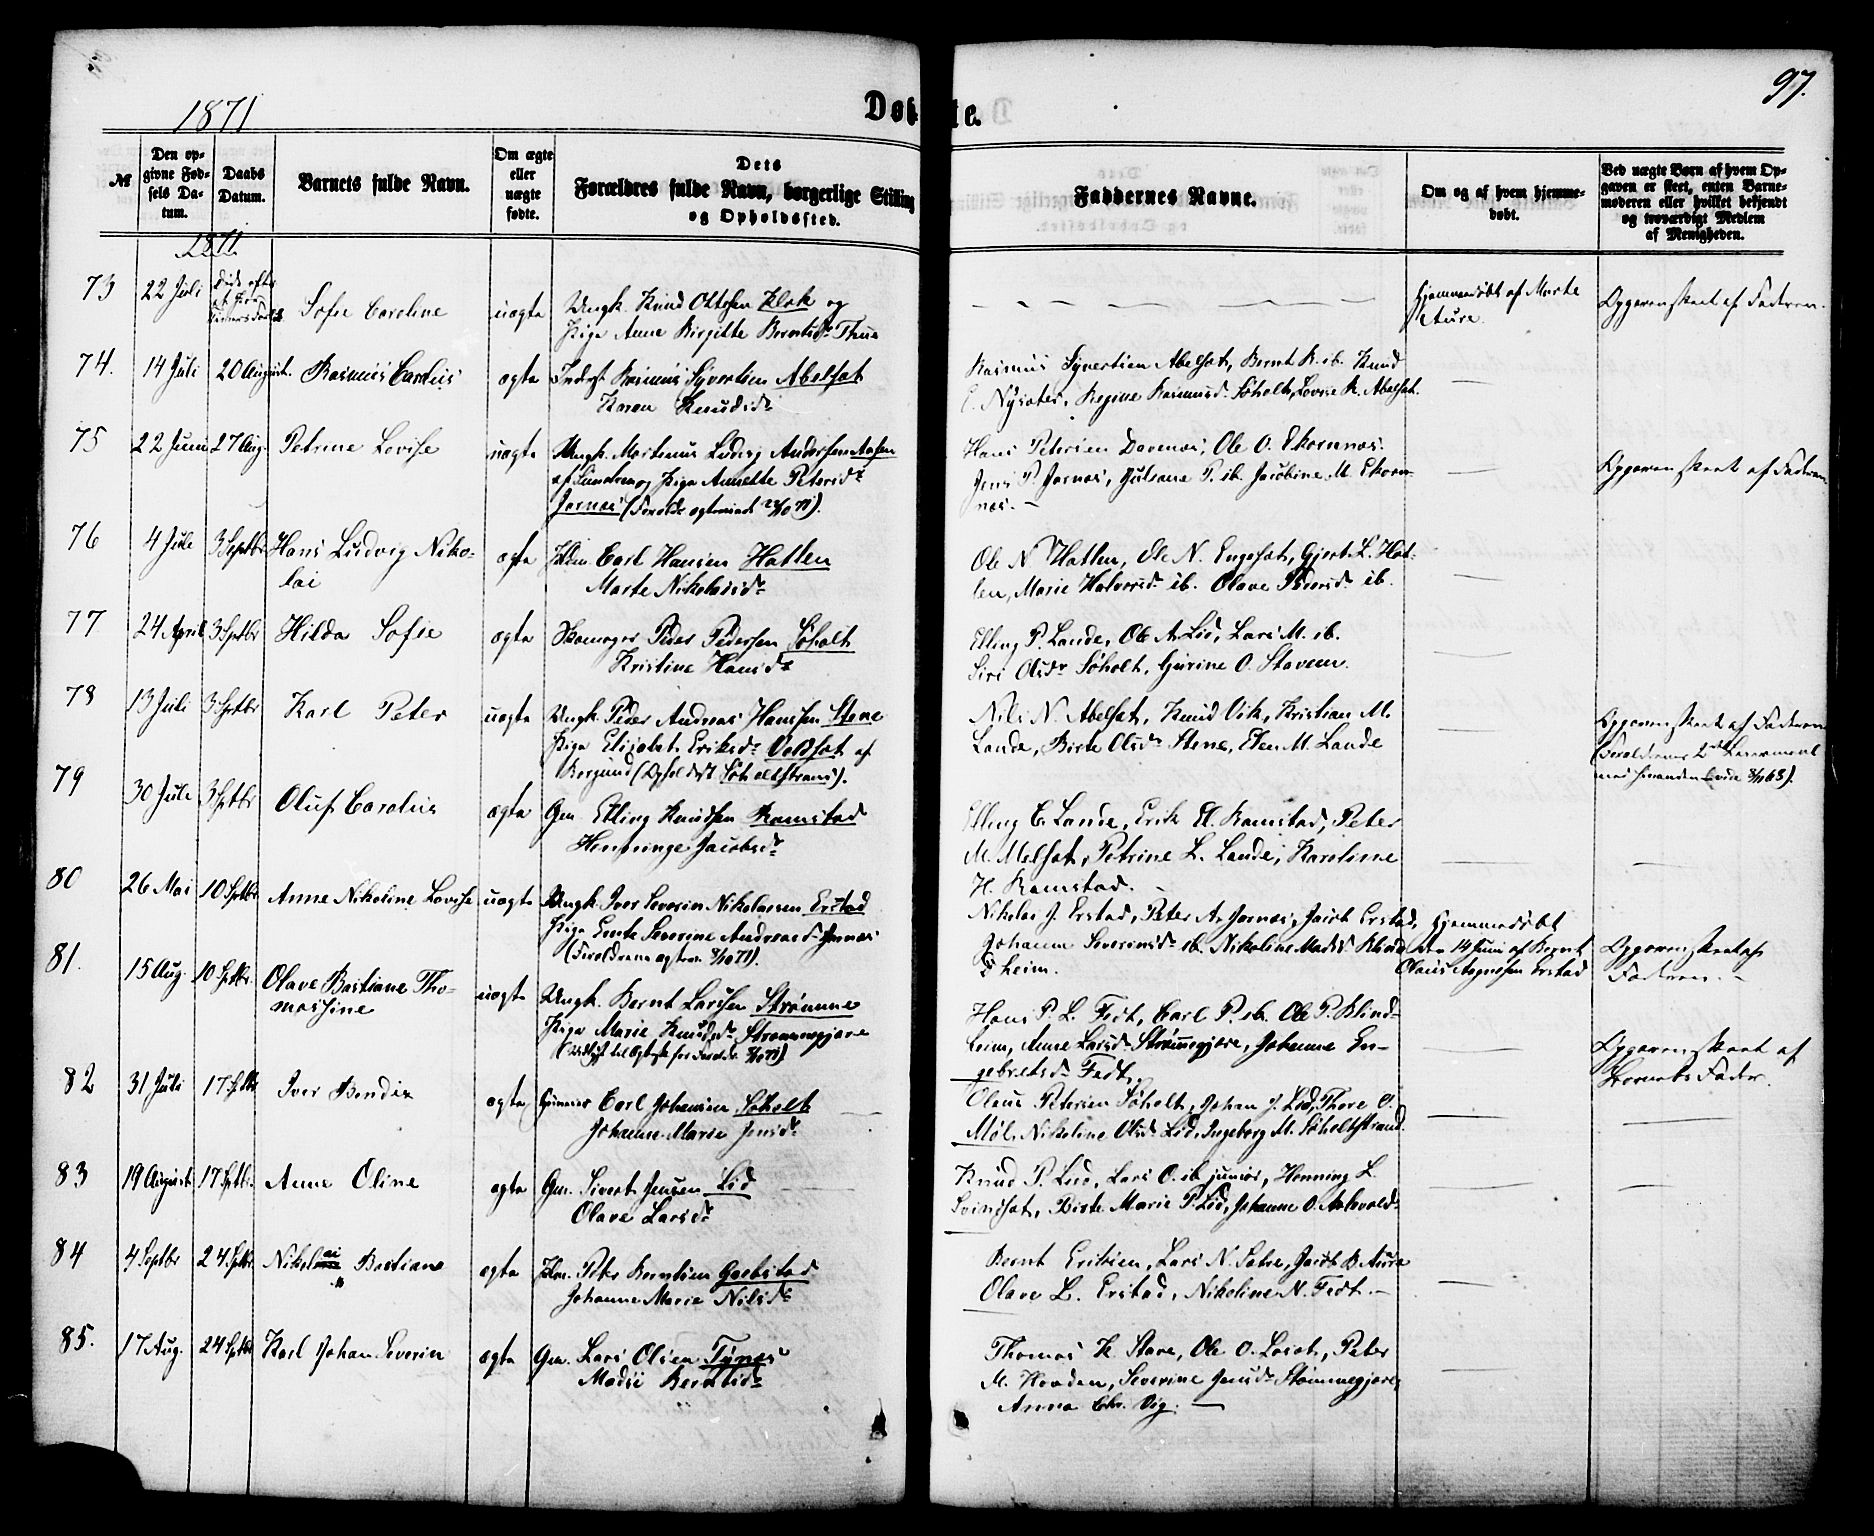 1871
Døbte.
97.
№
Den opgivne Fødsels Datum.
Daabs Datum.
Barnets fulde Navn.
Om ægte eller uægte fødte.
Dets Forældres fulde Navn, borgerlige Stilling og Opholdssted.
Faddernes Navne.
Om og af hvem hjemmedøbt.
Ved uægte Børn af hvem Opgaven er skeet, enten Barnemoderen eller hvilket bekjendt og troværdigt Medlem af Menigheden.
1871.
73 22 Juli Sofie Caroline uægte Ungk. Knud Ottesen Klok og
Pige Anne Birgitte Berntsdr Thue
Hjemmedøbt af Marte
Aure.
Opgaven skeet af Faderen.
74. 14 Juli 20 August. Rasmus Carolus ægte Inderst Rasmus Syvertsen Abelset
Karen Knudsdr
Rasmus Syvertsen Abelset, Bernt R. ib. Knud
E. Nysæter, Regine Rasmusdr Søholt, Lovise K. Abelset.
75 22 Juni 27 Aug. Petrine Lovise uægte Ungk. Martinus Ludvig Andersen Aasen
og Pige Annette Petersdr
Jarnæs
Hans Petersen Davenæs, Ole O. Ekornnæs.
Jens P. Jarnæs, Gulsane P. ib. Jacobine M. Ekorn-
næs.
Opgaven skeet af Faderen
76 4 Juli 3 Septbr Hans Ludvig Niko-
lai
ægte Carl Hansen Hatlen
Marte Nikolaisdr
Ole N Hatlen, Ole N. Engeset, Gjert L. Hat-
len, Marie Halvorsdr ib. Olave Pedersdr ib.
77 24 April 3 Septbr Hilda Sofie ægte Skomager Peder Pedersen Søholt
Kristine Hansdr
Elling P. Lande, Ole A. Lid, Lars M. ib.
Siri Olsdr Søholt, Gurine O. Stavem.
78 13 Juli 3 Septbr Karl Peter uægte Ungk. Peder Andreas Hanssen Stene
Pige Elisabet Eriksdr Vedset af
Borgund (Opholdst Søholtstrand).
Nils N. Abelset, Knud Vik, Kristian M.
Lande, Birte Olsdr Stene, Elen M. Lande
Opgaven skeet af Faderen
79 30 Juli 3 Septbr Oluf Carolus ægte Gm. Elling Knudsen Ramstad
Henninge Jacobsdr
Elling E. Lande, Erik El. Ramstad, Peter
M. Melset, Petrine L. Lande, Karoline
H. Ramstad.
80 26 Mai 10 Septbr Anne Nikoline Lovise uægte Ungk. Iver Severin Nikolaisen Erstad
Pige Severine Andreasdr Jarnæs
Nikolai J. Erstad, Peter A. Jarnæs, Jacob Erstad,
Johanne Severinsdr ib. Nikoline Madsd Blind-
heim.
Hjemmedøbt
den 14 Juni af Bernt
Olaus Aagesen Erstad
Opgaven skeet af
Faderen.
81. 15 Aug. 10 Septbr. Olave Bastiane Tho-
massine
uægte Ungk. Bernt Larssen Strømme
Pige Marie Knudsdr Strømmegjære
Hans P. L. Fedt, Carl P. ib. Ole P. Blind-
heim, Anne Larsdr Strømmegjære, Johanne En-
gebretsdr Fedt.
Opgaven skeet af
Barnets Fader.
82 31 Juli 17 Septbr Iver Bendix ægte Carl Johansen Søholt
Johanne Marie Jensdr
Olaus Petersen Søholt, Johan J. Lid, Thore O.
Møl, Nikoline Olsdr Lid, Ingeborg M. Søholtstrand.
83 19 August 17 Septbr. Anne Oline ægte Gm. Sivert Jensen Lid
Olave Larsdr
Knud P. Lid, Lars O. ib junior, Henning L.
Svindset, Birte Marie P. Lid, Johanne O. Aakevold
84 4 Septbr 24 Septbr. Nikolai Bastian ægte Peter Berntsen Gjebstad
Johanne Marie Nilsdr
Bernt Eriksen, Lars N. Sætre, Jacob B. Aure
Olave L. Erstad, Nikoline N. Fedt.
85. 17 Aug. 24 Septbr Karl Johan Severin ægte Gm. Lars Olsen Tynes
Madsi Berntsdr
Thomas K. Stave, Ole O. Løset, Peter
M. Hovden, Severine Jensdr Strømmegjære,
Anna Chr. Vig.